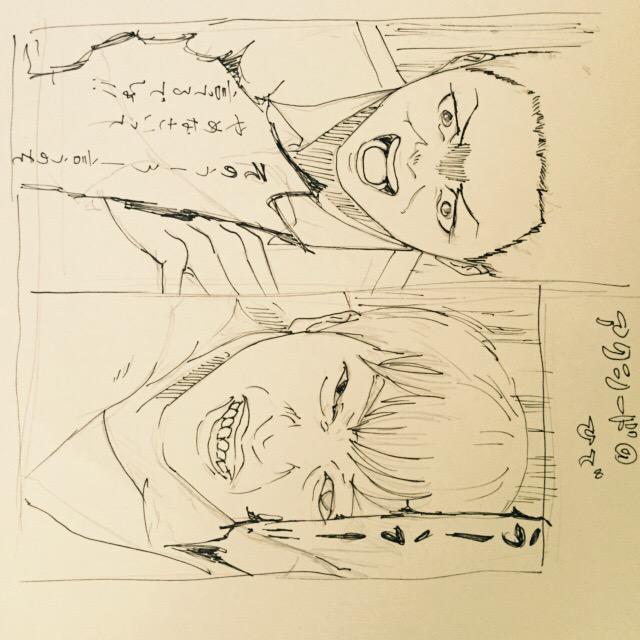 アクシードの
ひで
うーうー!!
そのうーうー言うのを
やめなさいって
言ってるでしょ!!